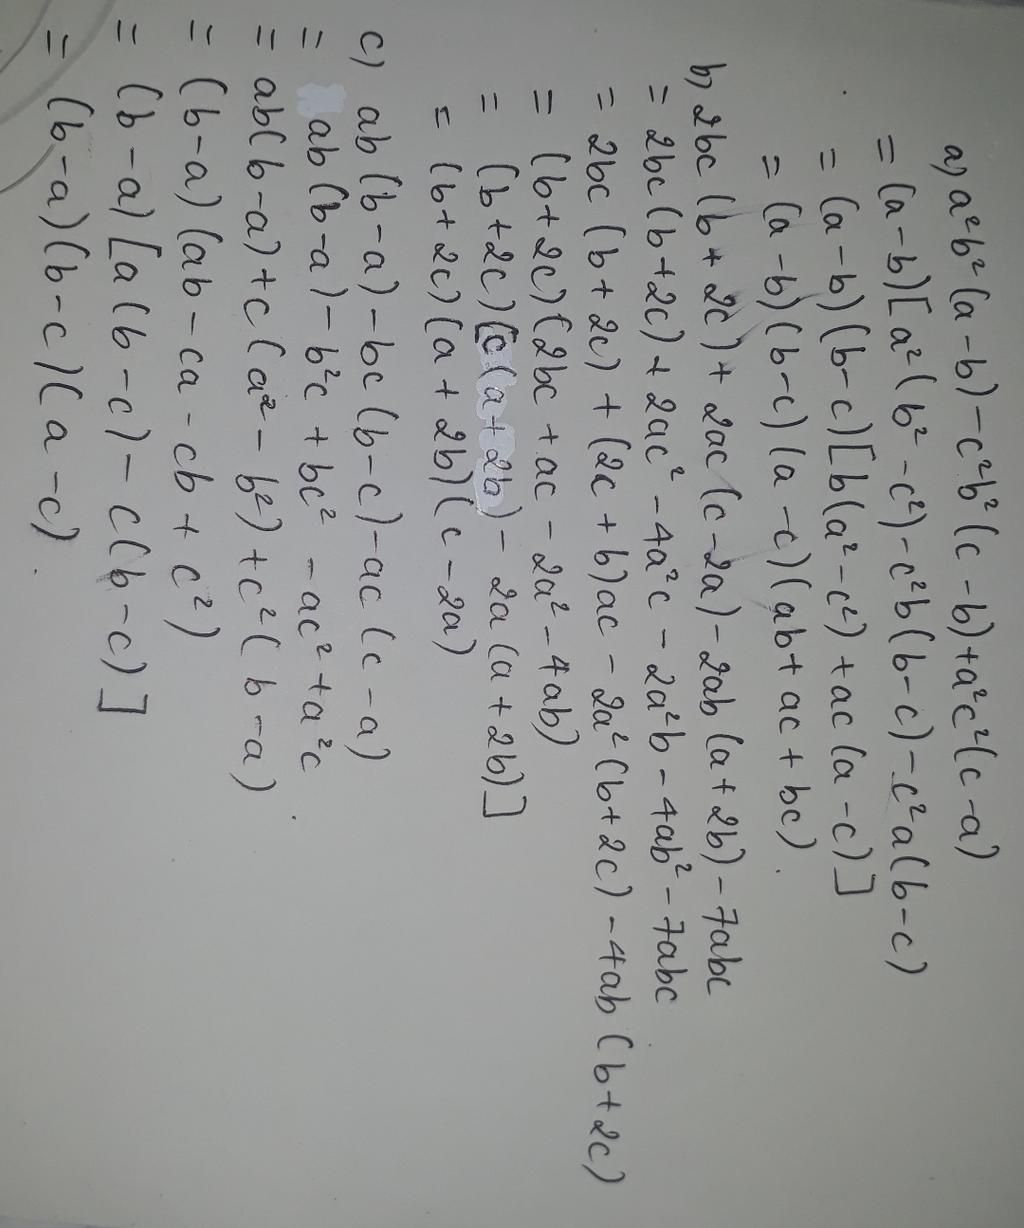 a) a²b²(a-b)-c²b²(c-b)+a²c²(c-a)
= (a-b)[a²(b²-c²)-c²b(b-c)-c²a(b-c)
= (a-b)(b-c)[b(a²-c²)+ac(a-c)]
= (a-b)(b-c)(a-c)(ab+ac+bc).
b) 2bc(b+2c)+2ac(c-2a)-2ab(a+2b)-7abc
= 2bc(b+2c)+2ac²-4a²c-2a²b-4ab²-7abc
= 2bc(b+2c)+(2c+b)ac-2a²(b+2c)-4ab(b+2c)
= (b+2c)(2bc+ac-2a²-4ab)
= (b+2c)[c(a+2b)-2a(a+2b)]
= (b+2c)(a+2b)(c-2a)
c) ab(b-a)-bc(b-c)-ac(c-a)
= ab(b-a)-b²c+bc²-ac²+a²c
= ab(b-a)+c(a²-b²)+c²(b-a)
= (b-a)(ab-ca-cb+c²)
= (b-a)[a(b-c)-c(b-c)]
= (b-a)(b-c)(a-c).